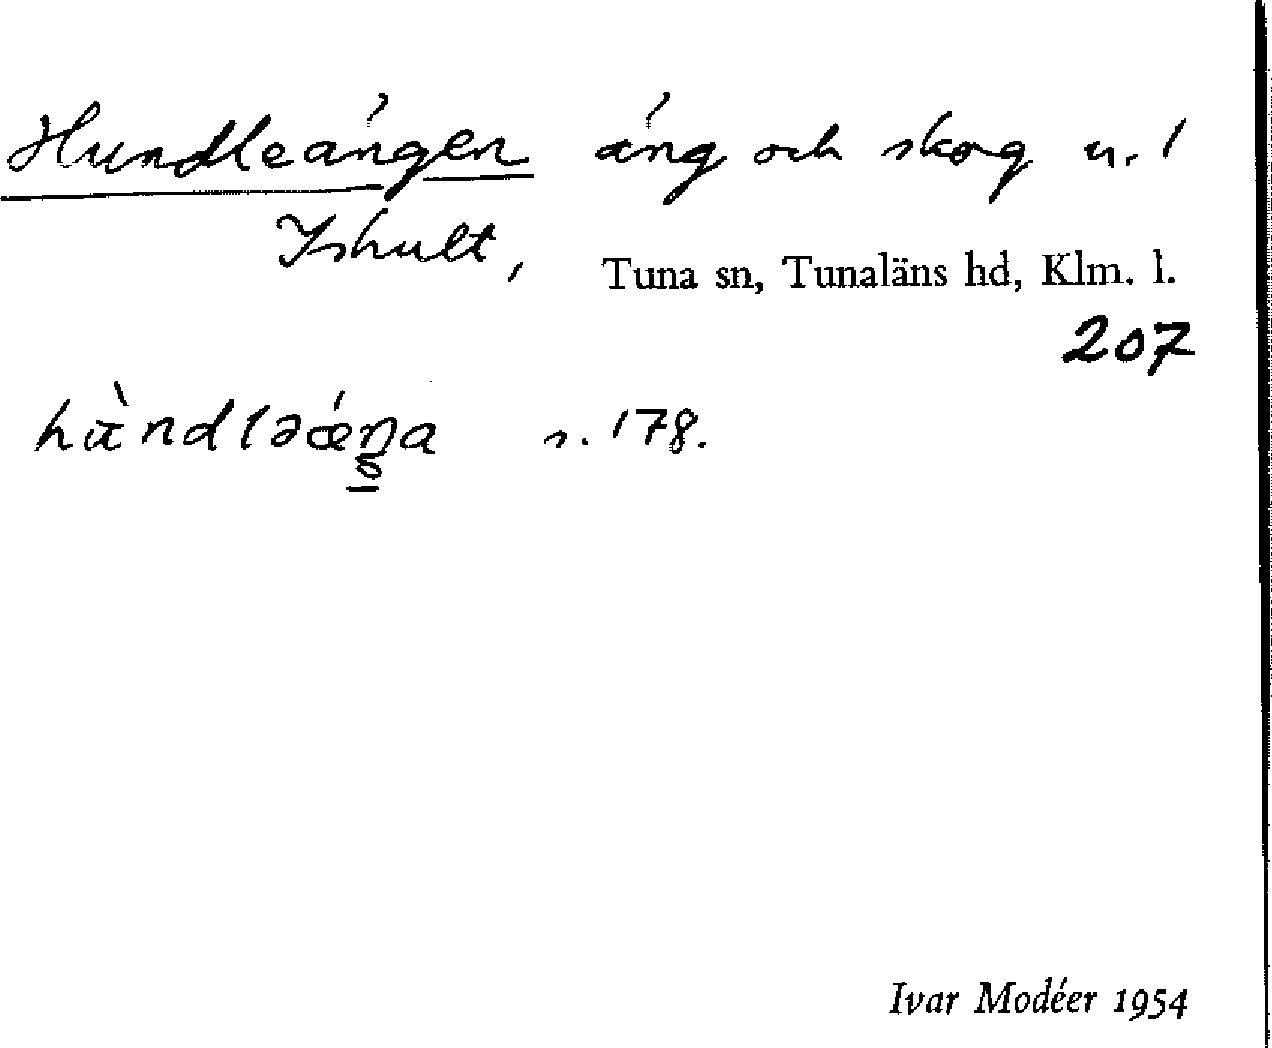 Hundleängen äng och skog u. 1
Ishult, Tuna sn, Tunaläns hd, Klm. l.
207
s. 178.
Ivar Modéer 1954